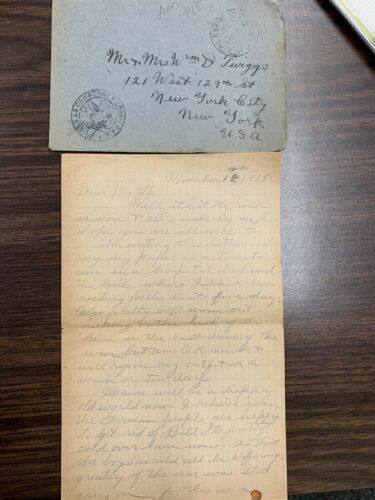 Nov.
1918
Mr & Mrs Wm D Twiggs
121 West 129th St
New York City
New York
USA
November 14th 1918.
Dear Martha
Well, at last the war
is won & all's well by me
hope you are all well too
I'm writing this letter
ing my paper on a tomato
can in a hospital beyond
the lines where I have been
resting for the last five days
Was pretty well worn out
keeping on the heels of the
hun in the last drive of the
war, but am O.K. now &
will rejoin my outfit in a
week or ten days
It sure will be a happy
old world now. I believe even
the German people are happy
to get rid of Bill. It's pretty
cold over here now so that
the boys would all be suffering
greatly if the war was still
going on